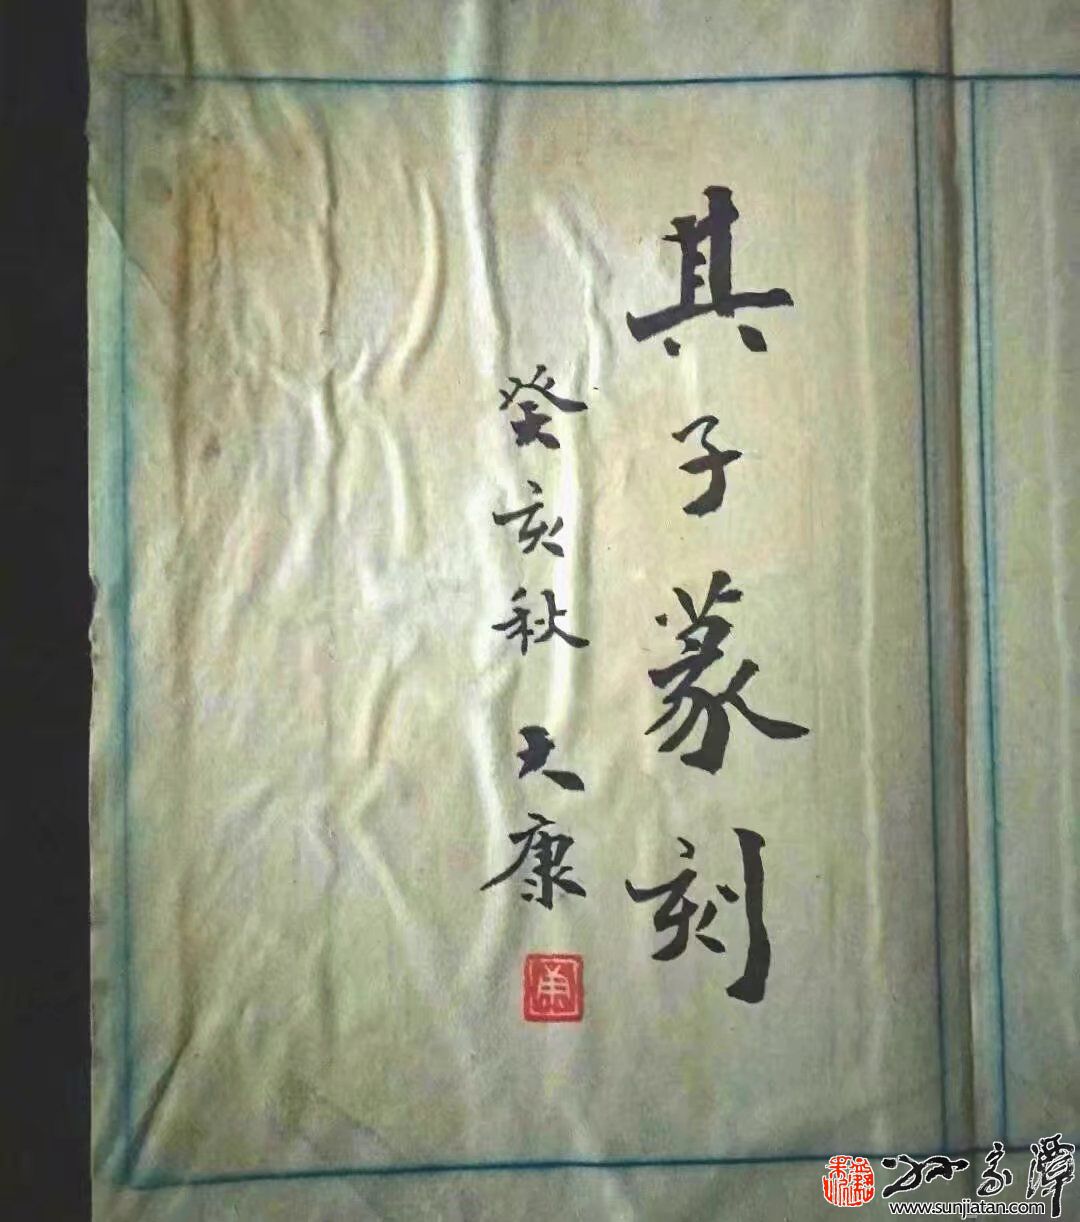 其子篆刻
癸亥秋 大康
康
孙家潭
www.sunjiatan.com